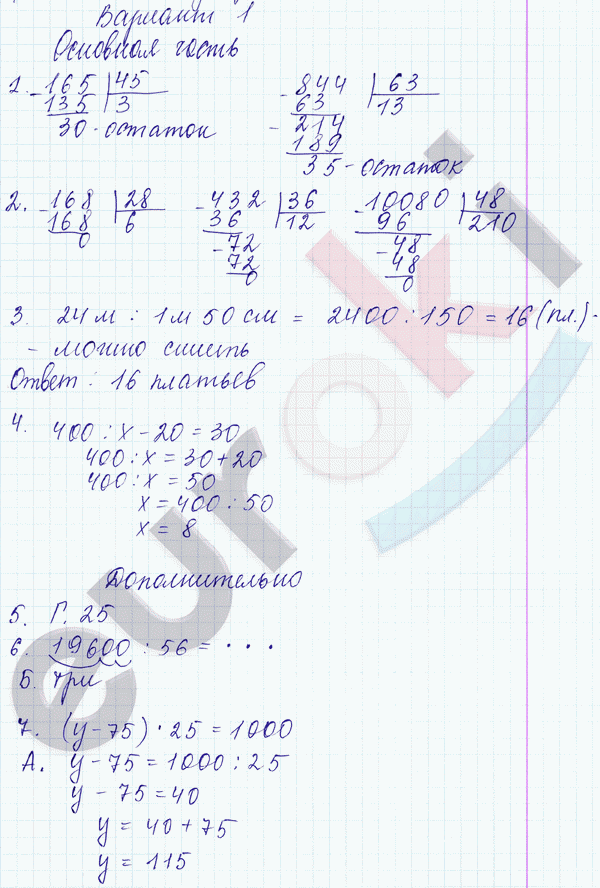 Вариант 1
Основная часть
1. - 165 | 45    - 844 | 63
135 | 3    63 | 13
30 - остаток    - 214
189
35 - остаток
2. - 168 | 28    - 432 | 36    - 10080 | 48
168 | 6    36 | 12    96 | 210
0    - 72    - 48
72    48
0    0
3. 24 м : 1 м 50 см = 2400 : 150 = 16 (пл.) -
- можно сшить
Ответ : 16 платьев
4. 400 : x - 20 = 30
400 : x = 30 + 20
400 : x = 50
x = 400 : 50
x = 8
Дополнительно
5. Г. 25
6. 19600 : 56 = ...
Б. три
7. (y - 75) · 25 = 1000
А. y - 75 = 1000 : 25
y - 75 = 40
y = 40 + 75
y = 115
euroki